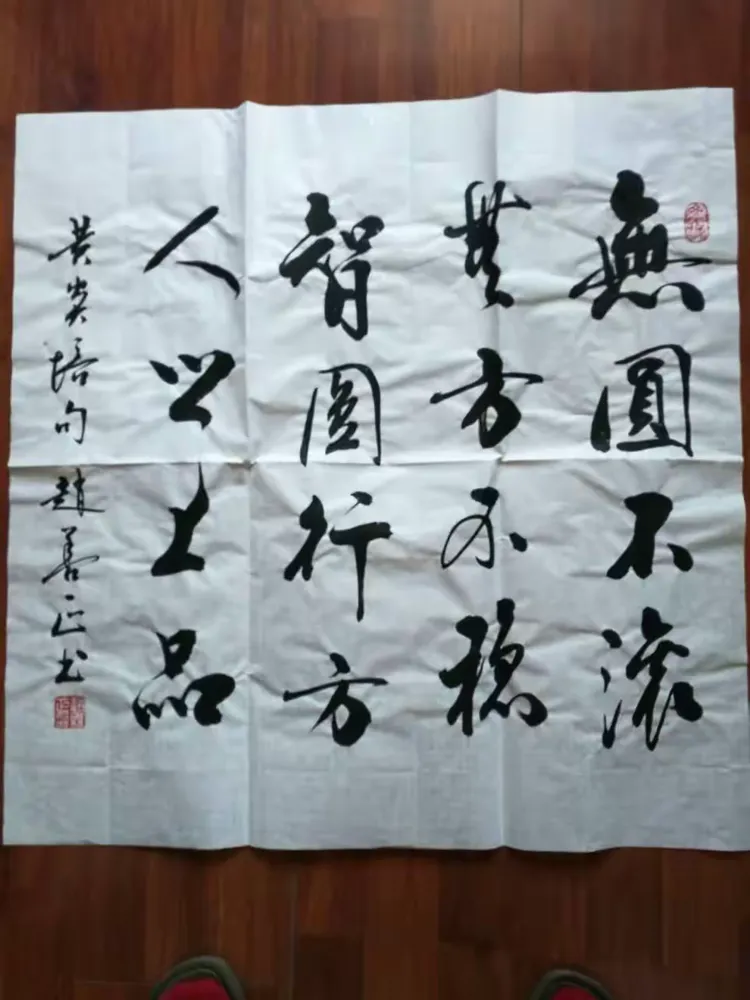 無圓不滾
無方不穩
智圓行方
人以上品
黄炎培句 趙善正书